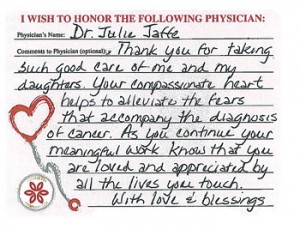 I WISH TO HONOR THE FOLLOWING PHYSICIAN:
Physician's Name: Dr. Julie Jaffe
Comments to Physician (optional): Thank you for taking
such good care of me and my
daughters. Your compassionate heart
helps to alleviate the fears
that accompany the diagnosis
of cancer. As you continue your
meaningful work know that you
are loved and appreciated by
all the lives you touch.
With love & blessings